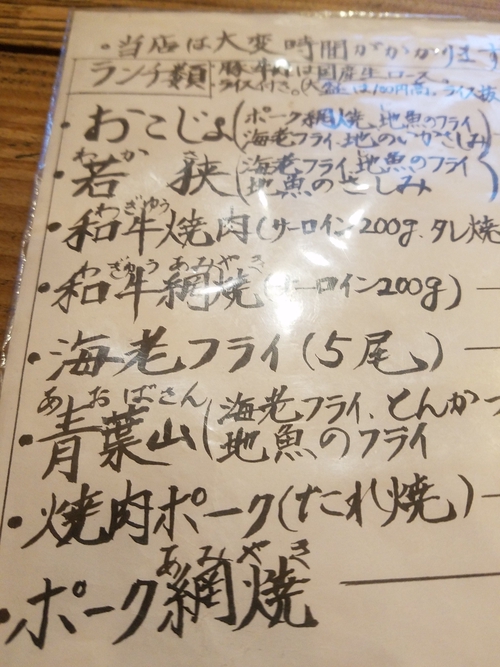 ・当店は大変時間がかかります
ランチ類
豚、牛肉は国産生ロース。
ライス付き。(大盛は100円高。ライス抜
・おこじょ(ポーク網焼、地魚のフライ
海老フライ、地のいかさしみ)
わか
・若狭(海老フライ、地魚のフライ
地魚のさしみ
わぎゅう
・和牛焼肉(サーロイン200g、タレ焼
わぎゅうあみやき
・和牛網焼(サーロイン200g)
・海老フライ(5尾)
あおばさん
・青葉山(海老フライ、とんかつ
地魚のフライ
・焼肉ポーク(たれ焼)
あみやき
・ポーク網焼